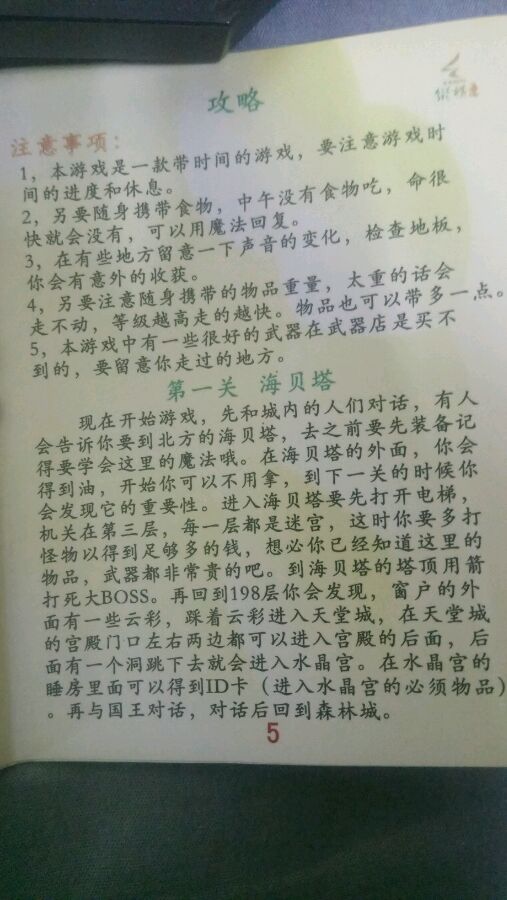 攻略
注意事项：
1，本游戏是一款带时间的游戏，要注意游戏时
间的进度和休息。
2，另要随身携带食物，中午没有食物吃，命很
快就会没有，可以用魔法回复。
3，在有些地方留意一下声音的变化，检查地板，
你会有意外的收获。
4，另要注意随身携带的物品重量，太重的话会
走不动，等级越高走的越快。物品也可以带多一点。
5，本游戏中有一些很好的武器在武器店是买不
到的，要留意你走过的地方。
第一关 海贝塔
现在开始游戏，先和城内的人们对话，有人
会告诉你要到北方的海贝塔，去之前要先装备记
得要学会这里的魔法哦。在海贝塔的外面，你会
得到油，开始你可以不用拿，到下一关的时候你
会发现它的重要性。进入海贝塔要先打开电梯，
机关在第三层，每一层都是迷宫，这时你要多打
怪物以得到足够多的钱，想必你已经知道这里的
物品，武器都非常贵的吧。到海贝塔的塔顶用箭
打死大BOSS。再回到198层你会发现，窗户的外
面有一些云彩，踩着云彩进入天堂城，在天堂城
的宫殿门口左右两边都可以进入宫殿的后面，后
面有一个洞跳下去就会进入水晶宫。在水晶宫的
睡房里面可以得到ID卡（进入水晶宫的必须物品）
。再与国王对话，对话后回到森林城。
5